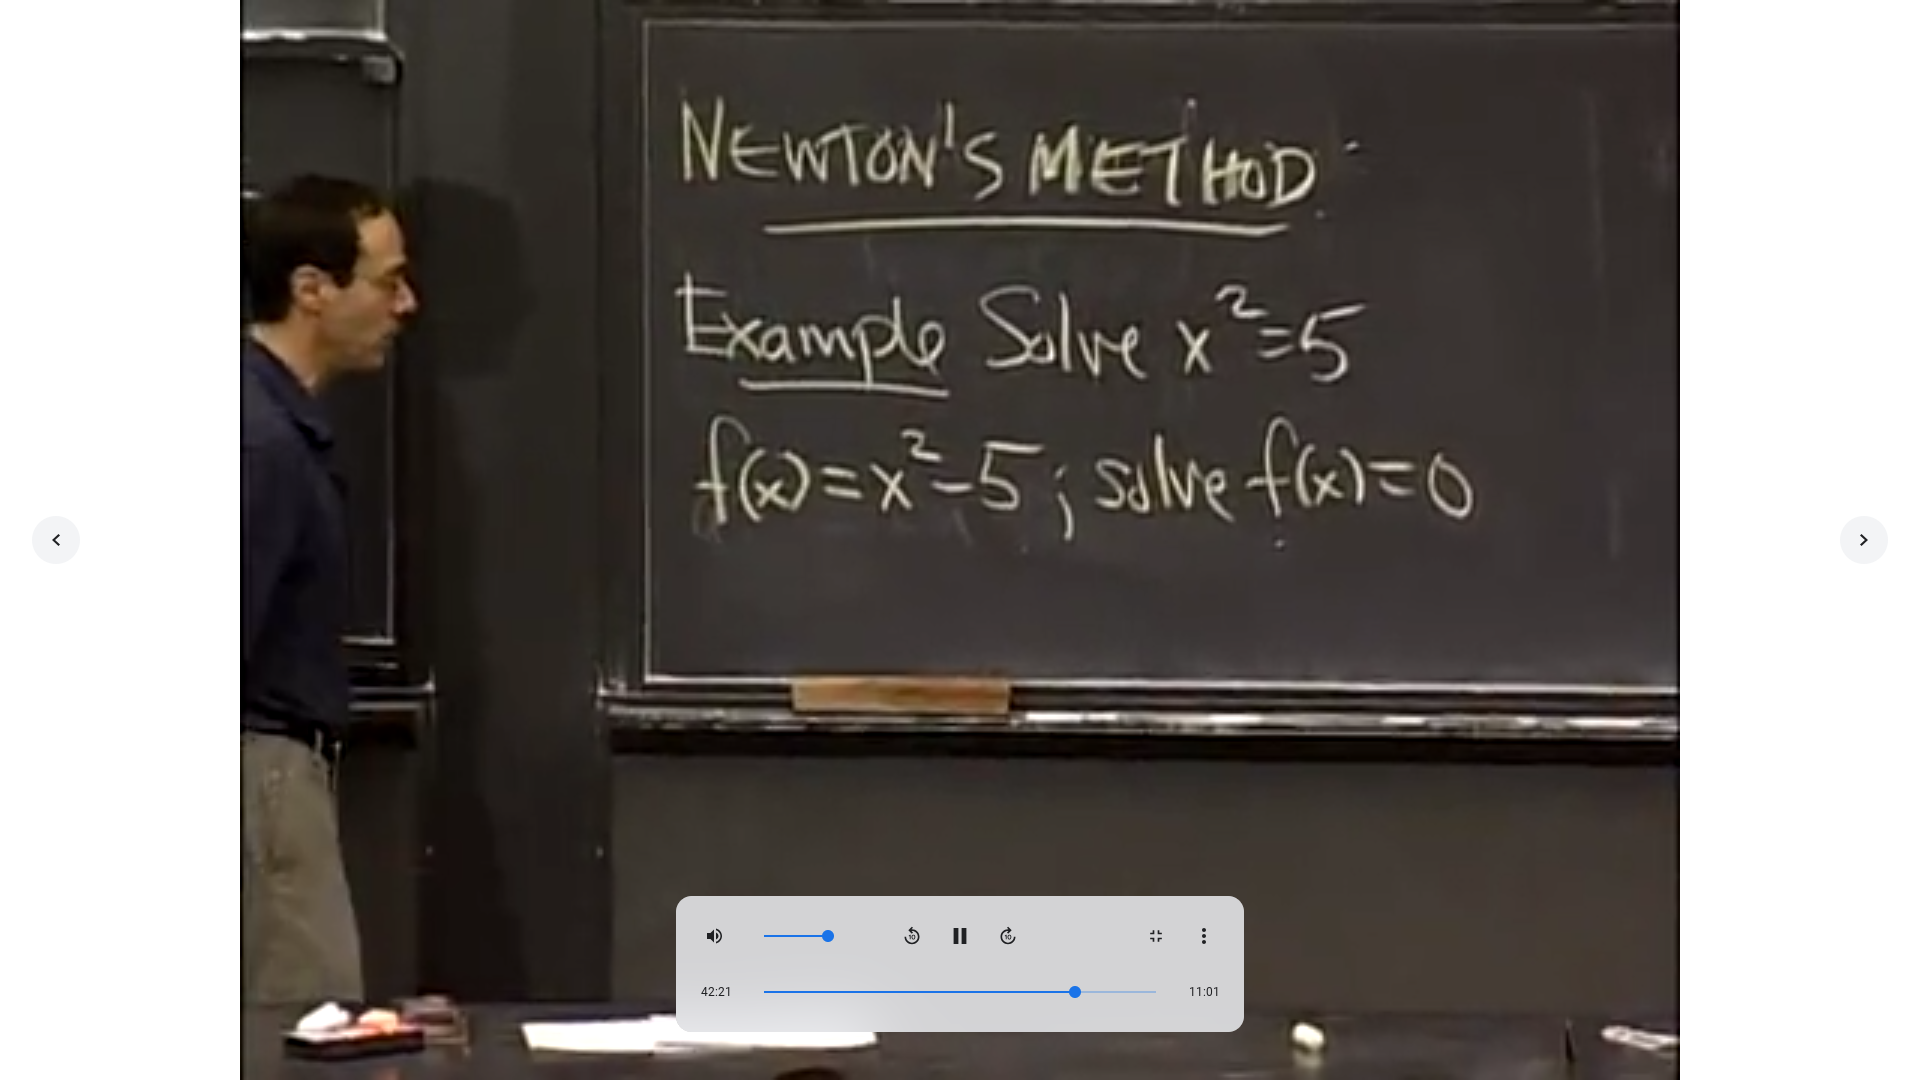 NEWTON'S METHOD
Example Solve x²=5
f(x)=x²-5; solve f(x)=0
10
10
42:21
11:01